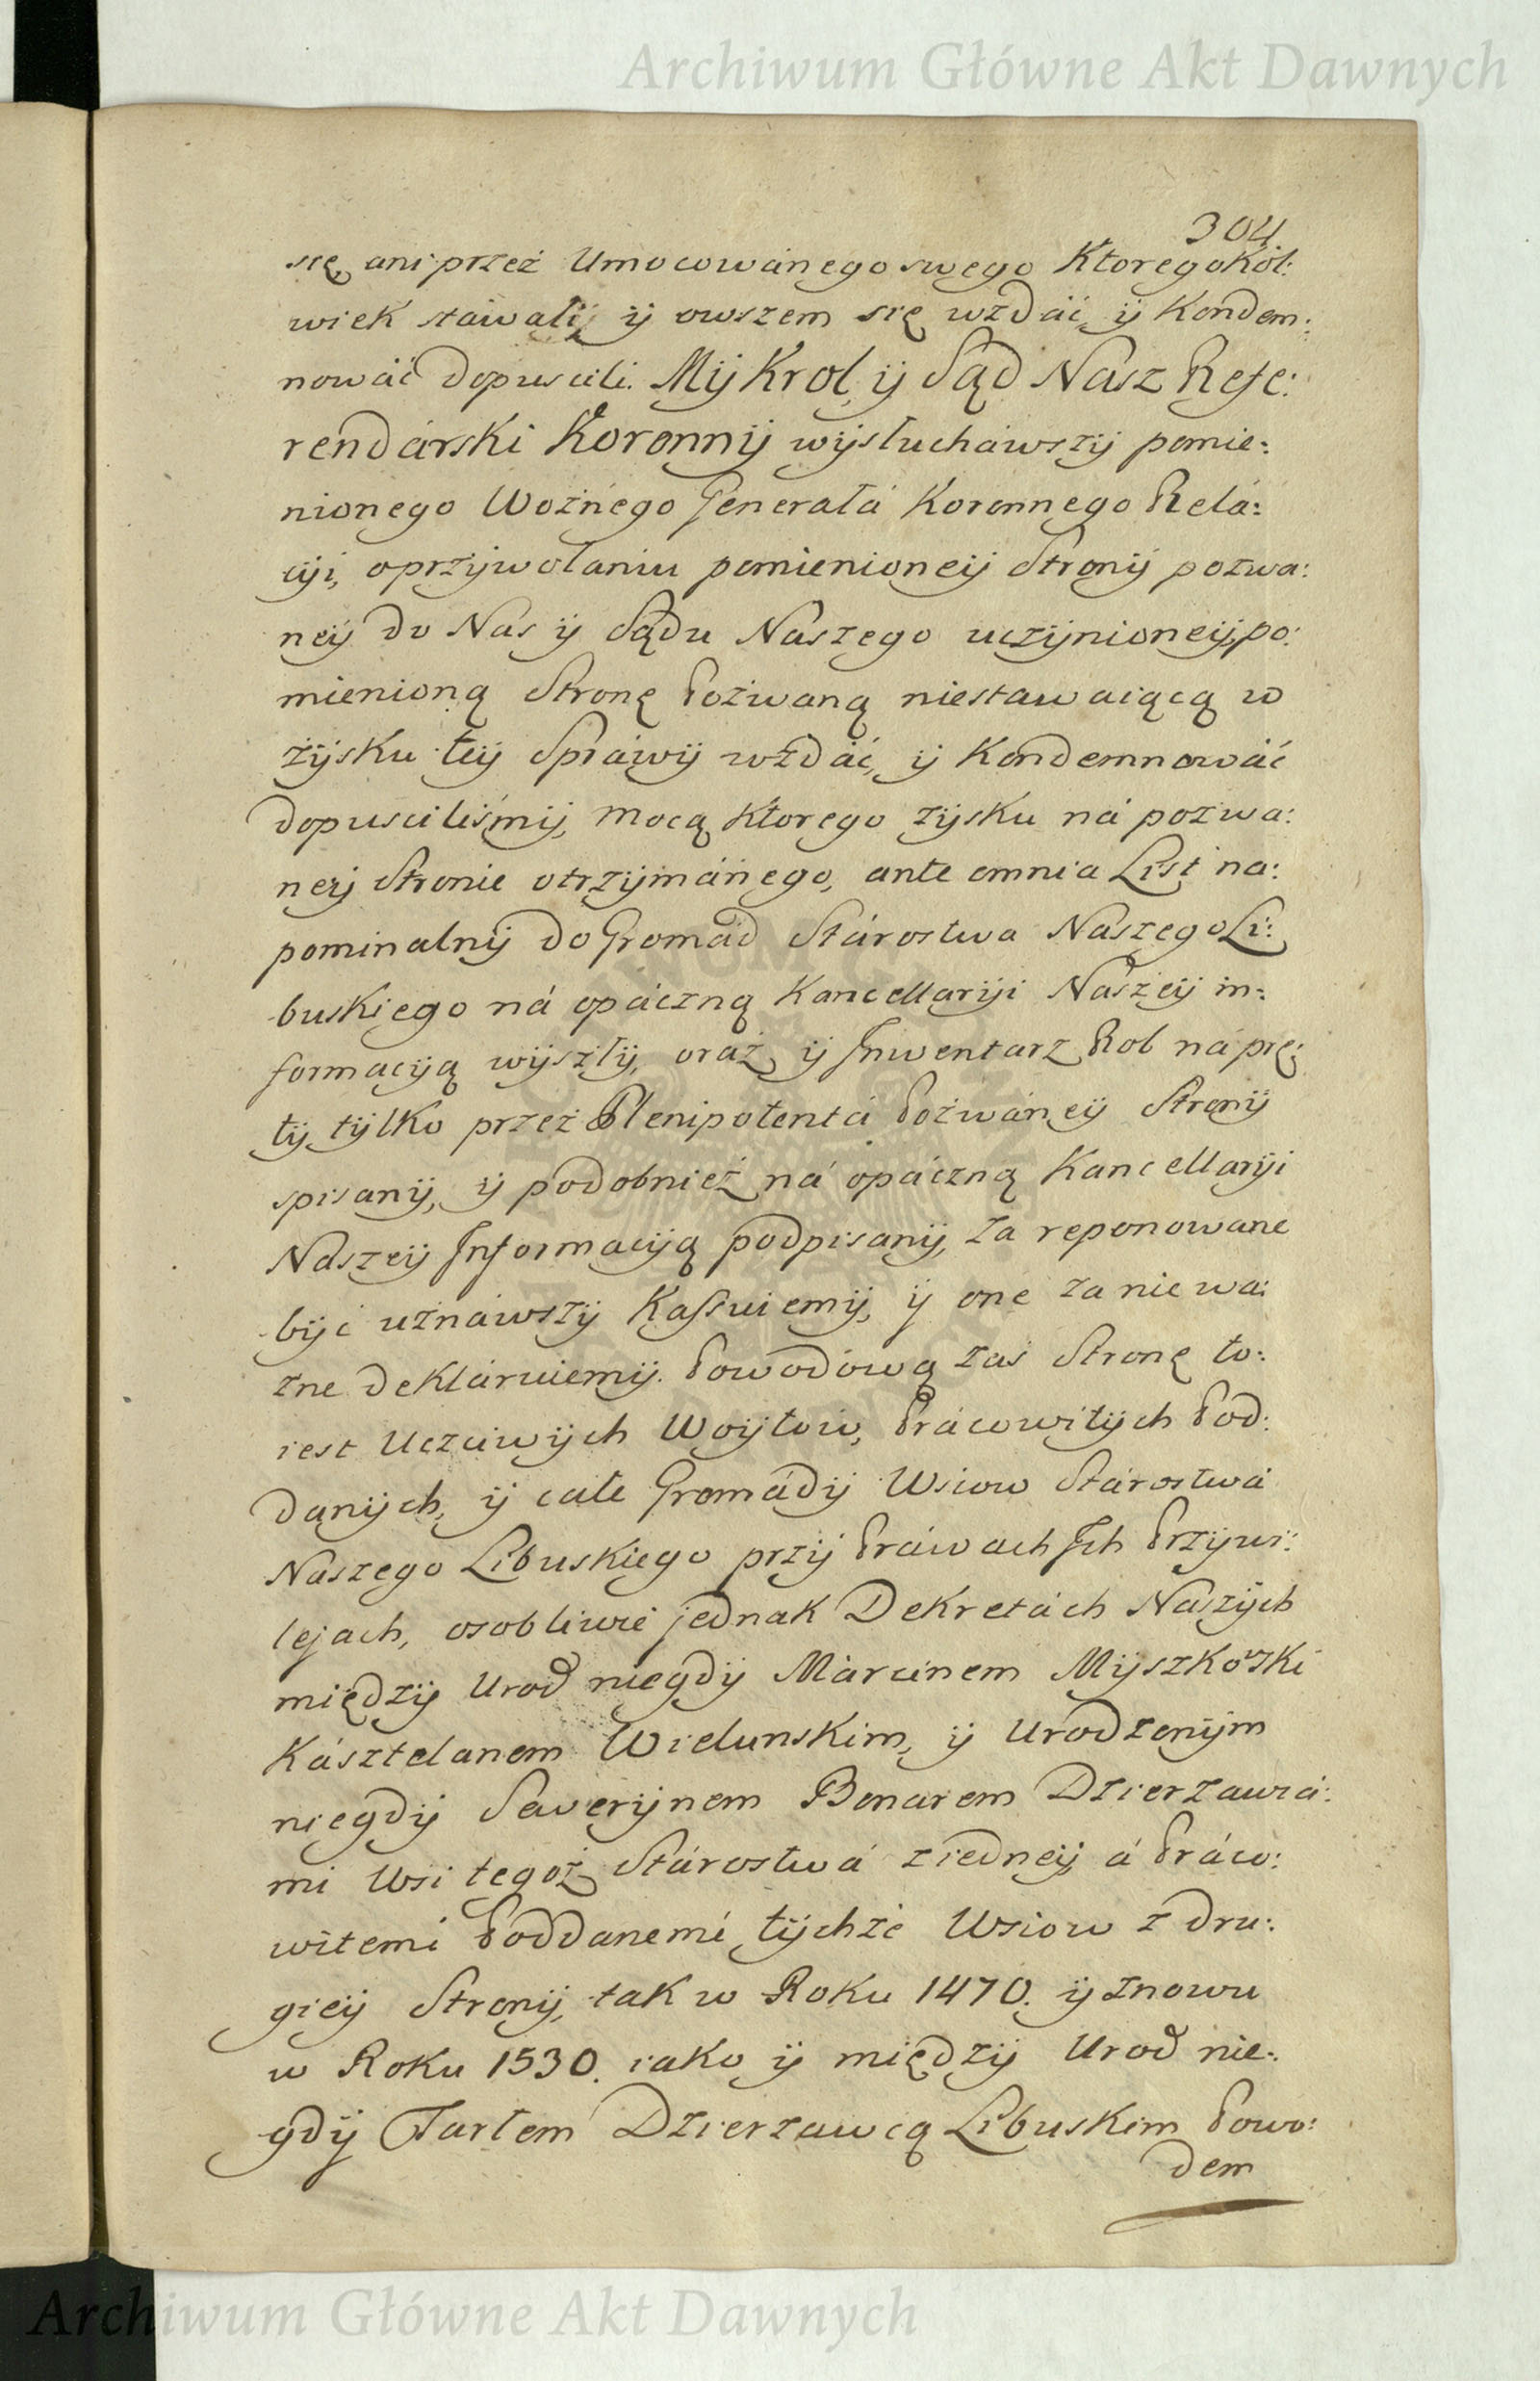 Archiwum Główne Akt Dawnych
304
się, ani przez Umocowanego swego Ktoregokol:
wiek stawali, ÿ owszem się wzdáć, ÿ Kondem:
nowáć dopuscili. Mÿ Krol, ÿ Sąd Nasz Refe:
rendárski Koronnÿ wÿsłucháwszÿ pomie:
nionego Woźnego Generałá Koronnego Relá:
cÿi, o przÿwołaniu pomienioneÿ Stronÿ pozwa:
neÿ do Nas ÿ Sądu Naszego uczÿnioneÿ, po:
mienioną Stronę Pozwaną niestawaiącą w
zÿsku teÿ Spráwÿ wzdáć, ÿ Kondemnowáć
dopusciliśmÿ, mocą Ktorego zÿsku ná pozwa:
neÿ Stronie otrzÿmánego, ante omnia List na:
pominalnÿ do Gromád Stárostwa Naszego Li:
buskiego ná opáczną Kancellarÿi Naszeÿ in:
formacÿą wÿszłÿ, oraz ÿ Inwentarz Rob náprę:
tÿ tÿlko przez Plenipotentá Pozwáneÿ Stronÿ
spisanÿ, ÿ podobnież ná opáczną Kancellarÿi
Naszeÿ Informacÿą podpisanÿ, za reponowane
bÿć uznáwszÿ Kassuiemÿ, ÿ one za niewa:
żne deklaruiemÿ. Powodową zaś Stronę to:
iest Uczciwÿch Woÿtow, Prácowitÿch Pod:
danÿch, ÿ całe Gromádÿ Wsiow Stárostwá
Naszego Libuskiego przÿ Práwach Ich Przÿwi:
lejach, osobliwie jednak Dekretách Naszÿch
międzÿ Urod niegdÿ Márcinem Mÿszkowski
Kásztelanem Wielunskim, ÿ Urodzonÿm
niegdÿ Sewerÿnem Bonarem Dzierzawcá:
mi Wsi tegoż Stárostwá z iedneÿ, á Práco:
witemi Poddanemi tÿchże Wsiow z dru:
gieÿ Stronÿ, tak w Roku 1470. ÿ znowu
w Roku 1530. iako ÿ międzÿ Urod nie:
gdÿ Tarłem Dzierzawcą Libuskim Powo:
dem
Archiwum Główne Akt Dawnych